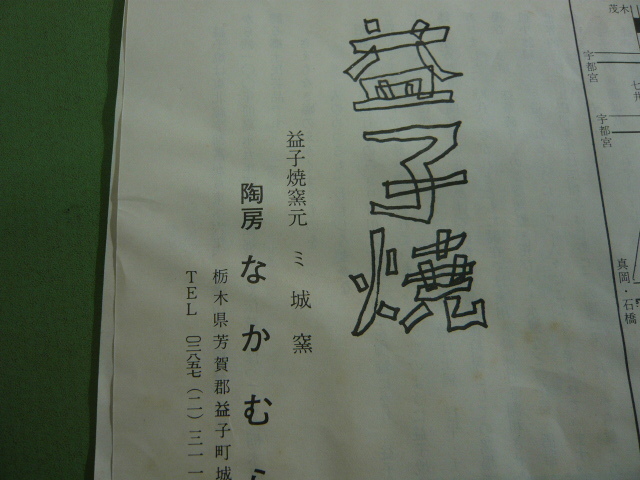 茂木
宇都宮
宇都宮
真岡・石橋
益子燒
益子焼窯元 ミ城窯
陶房なかむら
栃木県芳賀郡益子町城
TEL 〇二八五七(二)三一一